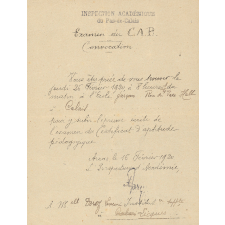 INSPECTION ACADÉMIQUE
du Pas-de-Calais
Examen du C.A.P.
Convocation
Vous êtes prié de vous trouver le
jeudi 26 Février 1920 à 8 heures du
matin à l'école garçons Rue du
à Calais
pour y subir l'épreuve écrite de
l'examen du Certificat d'aptitude
pédagogique.
Arras, le 16 Février 1920
L'Inspecteur d'Académie
A M